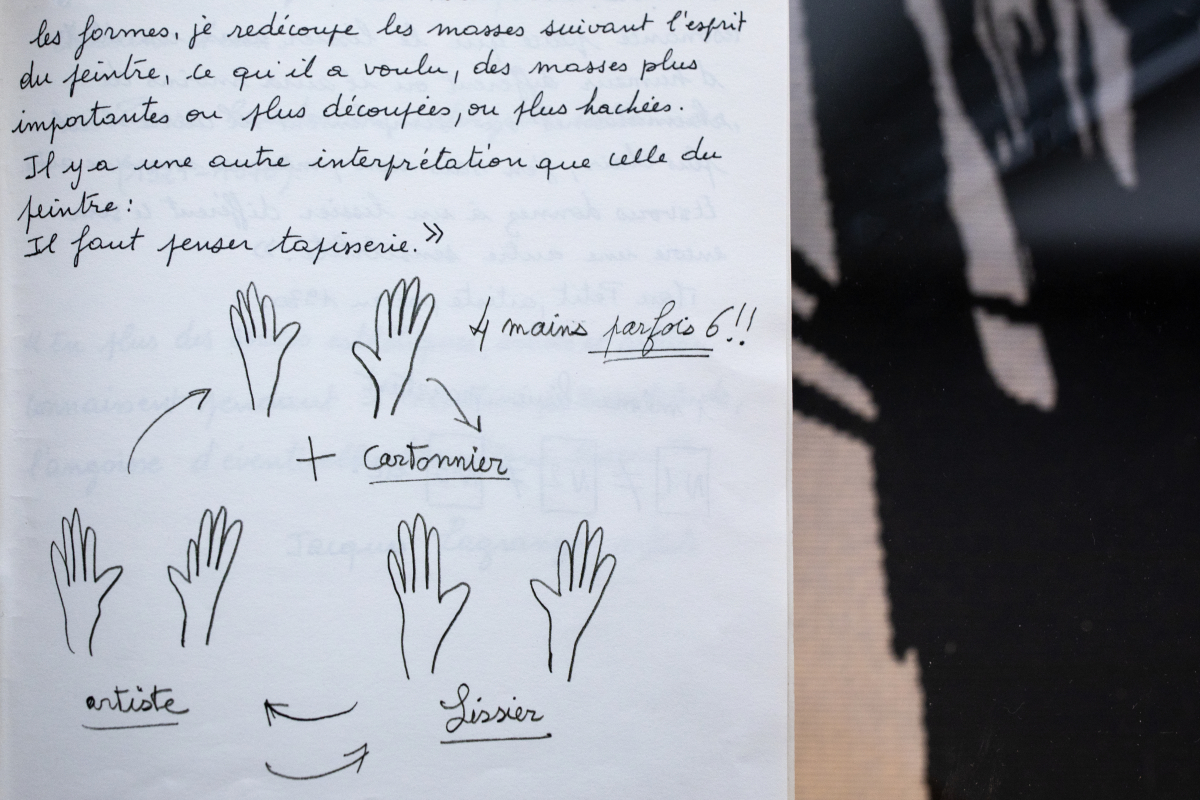 les formes, je redécoupe les masses suivant l'esprit
du peintre, ce qu'il a voulu, des masses plus
importantes ou plus découpées, ou plus hachées.
Il y a une autre interprétation que celle du
peintre :
Il faut penser tapisserie. »
4 mains parfois 6 !!
+ Cartonnier
artiste
Lissier